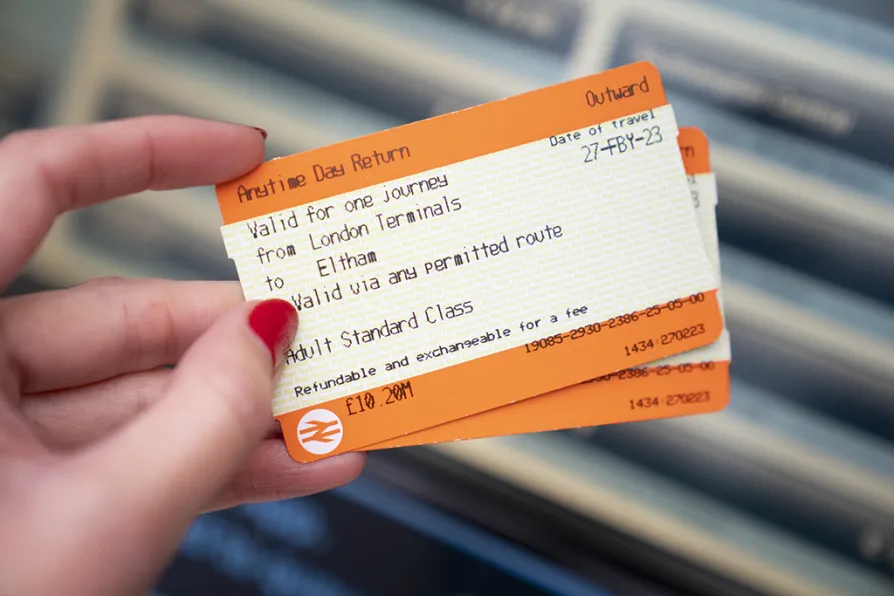 Outward
Anytime Day Return
Date of travel
27-FBY-23
Valid for one journey
from London Terminals
to Eltham
Valid via any permitted route
Adult Standard Class
Refundable and exchangeable for a fee
19085-2930-2386-25-05-00
1434 270223
£10.20M
2386-25-05-00
1434 270223